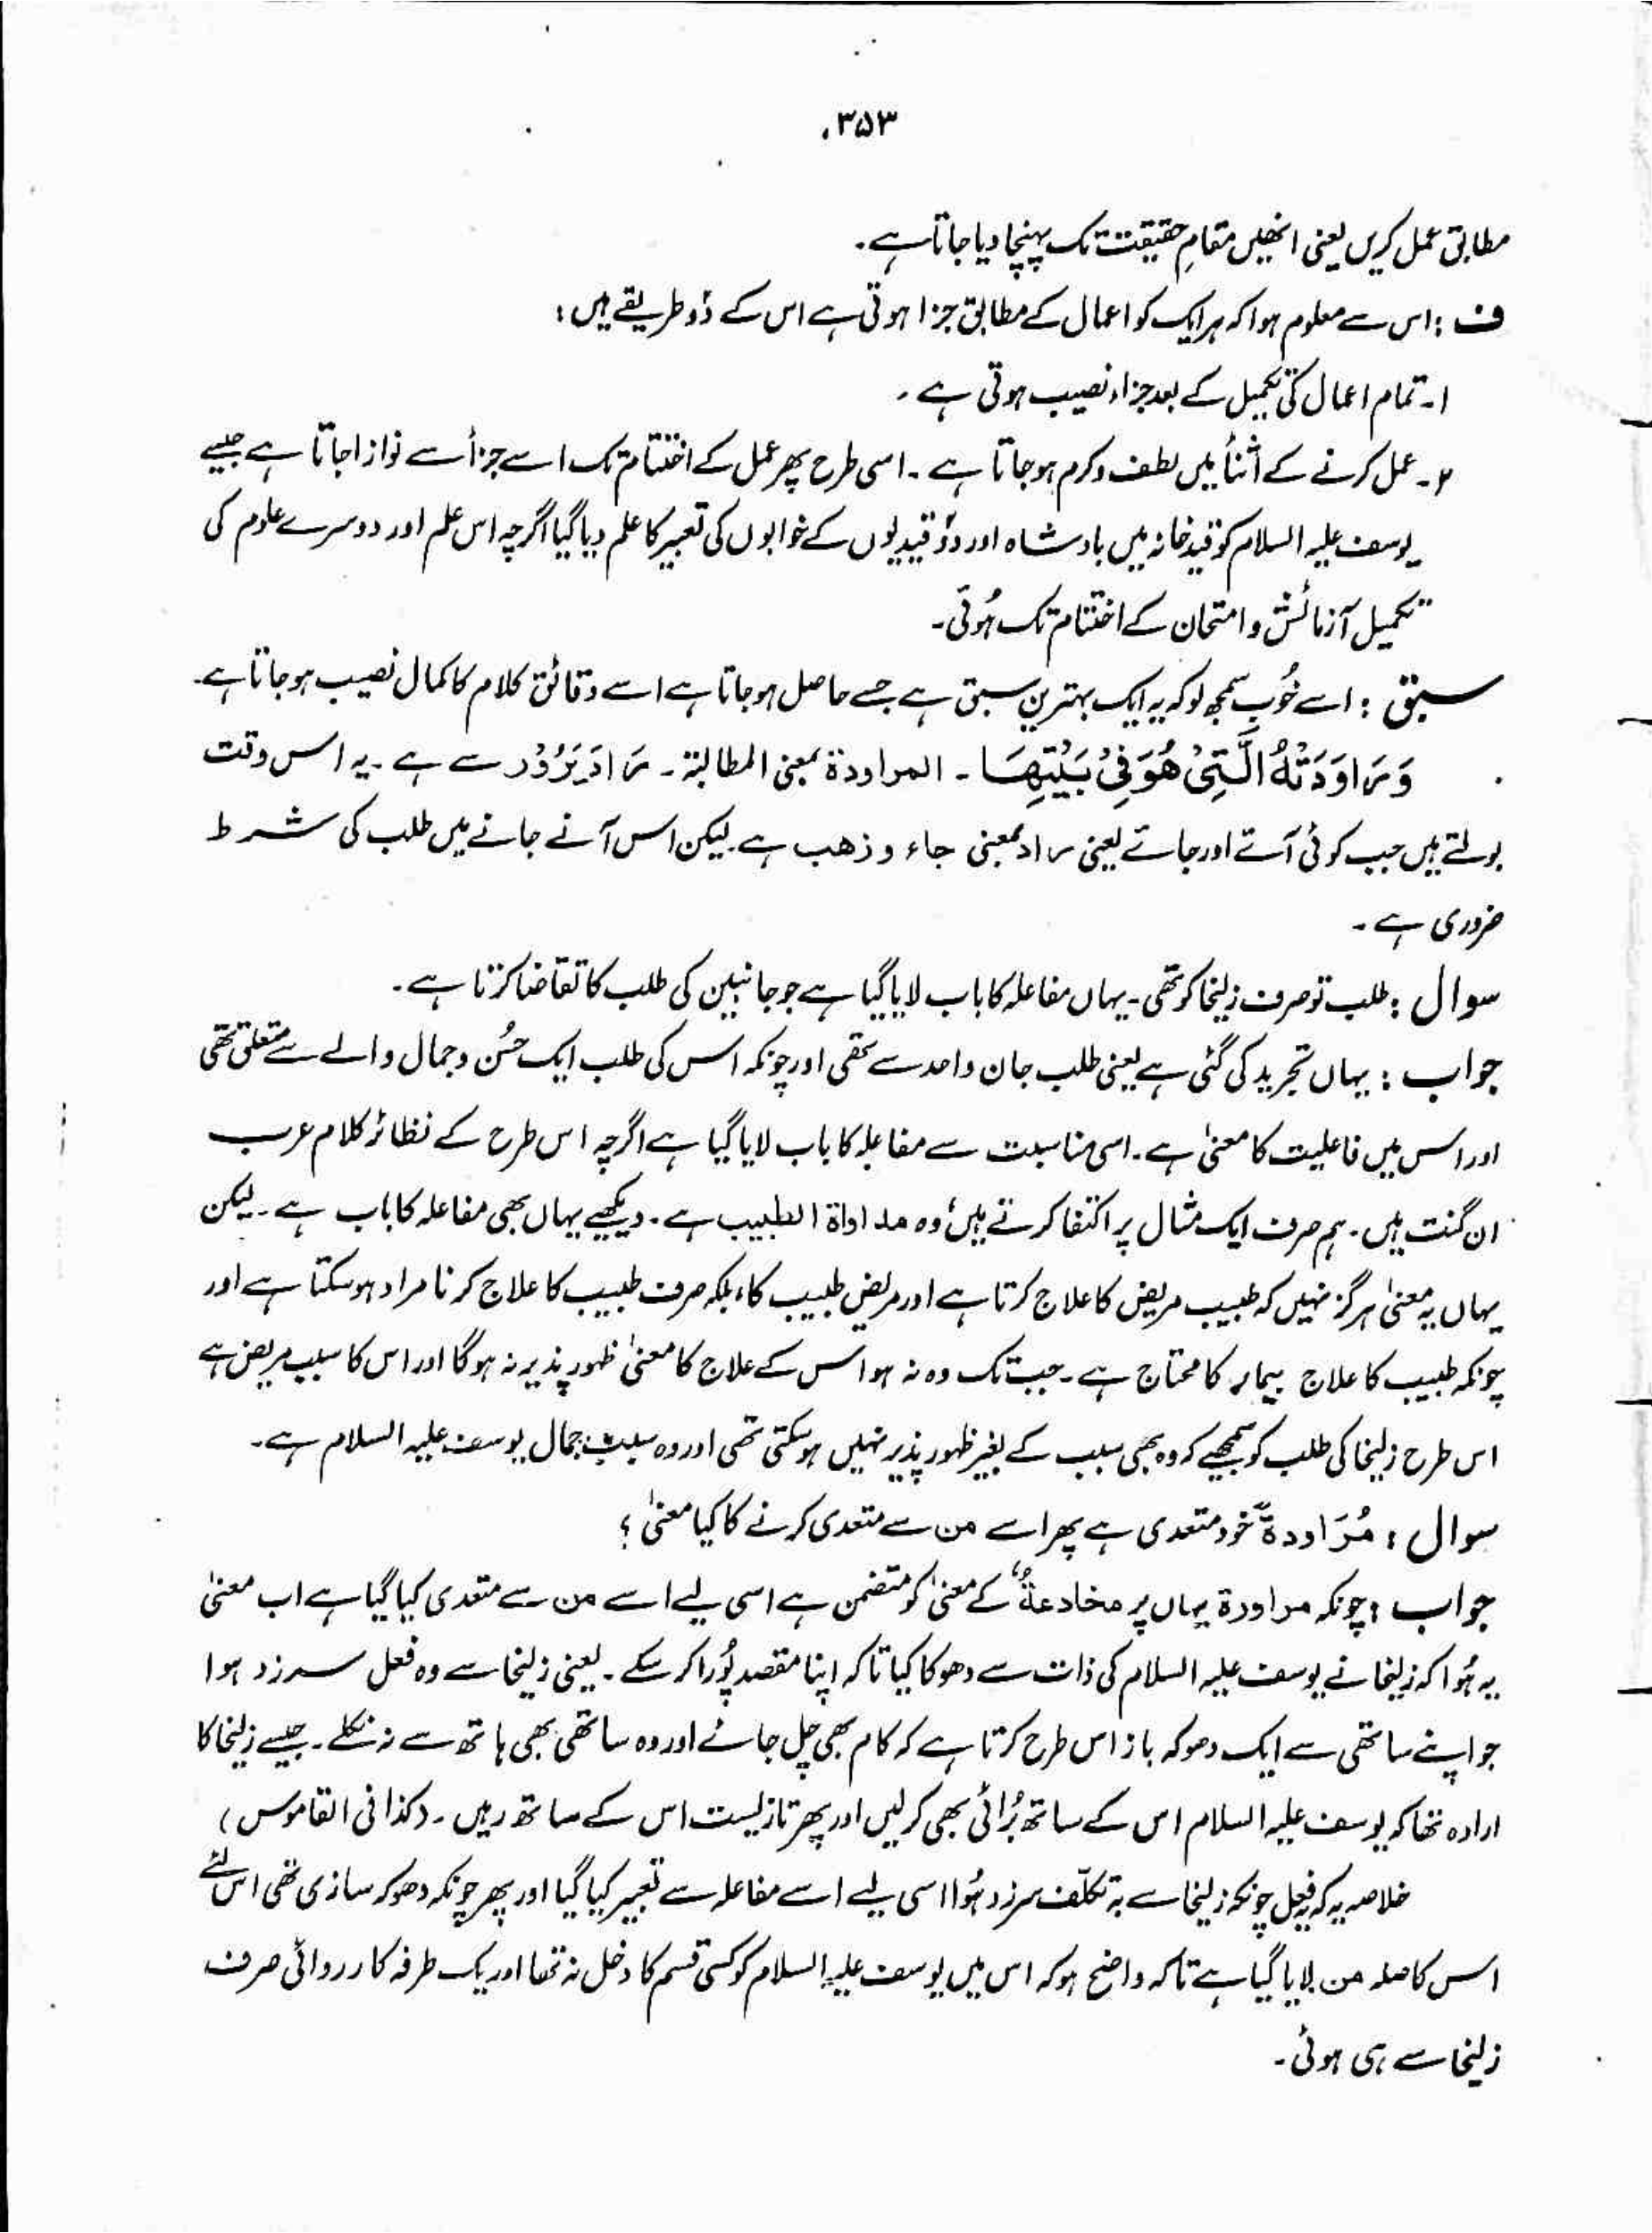 ۳۵۳
مطابق عمل کریں یعنی انھیں مقامِ حقیقت تک پہنچا دیا جاتا ہے۔
ف : اس سے معلوم ہوا کہ ہر ایک کو اعمال کے مطابق جزا ہوتی ہے اس کے دو طریقے ہیں :
۱۔ تمام اعمال کی تکمیل کے بعد جزاء نصیب ہوتی ہے ۔
۲۔ عمل کرنے کے اثنأ میں لطف و کرم ہو جاتا ہے ۔ اسی طرح پھر عمل کے اختتام تک اسے جزأ سے نوازا جاتا ہے جیسے
یوسف علیہ السلام کو قید خانہ میں بادشاہ اور دو قیدیوں کے خوابوں کی تعبیر کا علم دیا گیا اگرچہ اس علم اور دوسرے علوم کی
تکمیل آزمائش و امتحان کے اختتام تک ہُوئی۔
سبق : اسے خُوب سمجھ لو کہ یہ ایک بہترین سبق ہے جسے حاصل ہو جاتا ہے اسے دقائق کلام کا کمال نصیب ہو جاتا ہے۔
وَرَاوَدَتْهُ الَّتِیْ هُوَ فِیْ بَیْتِهَا ۔ المراودة بمعنی المطالبۃ ۔ رَادَ یَرُوْدُ سے ہے ۔ یہ اس وقت
بولتے ہیں جب کوئی آئے اور جائے یعنی راد بمعنی جاء و ذھب ہے لیکن اس آنے جانے میں طلب کی شرط
ضروری ہے ۔
سوال : طلب تو صرف زلیخا کو تھی ۔ یہاں مفاعلہ کا باب لایا گیا ہے جو جانبین کی طلب کا تقاضا کرتا ہے ۔
جواب : یہاں تجرید کی گئی ہے یعنی طلب جان واحد سے تھی اور چونکہ اس کی طلب ایک حُسن و جمال والے سے متعلق تھی
اور اس میں فاعلیت کا معنیٰ ہے ۔ اسی مناسبت سے مفاعلہ کا باب لایا گیا ہے اگرچہ اس طرح کے نظائر کلام عرب
ان گنت ہیں ۔ ہم صرف ایک مثال پر اکتفا کرتے ہیں وہ مداواۃ الطبیب ہے ۔ دیکھیے یہاں بھی مفاعلہ کا باب ہے ۔ لیکن
یہاں یہ معنیٰ ہرگز نہیں کہ طبیب مریض کا علاج کرتا ہے اور مریض طبیب کا، بلکہ صرف طبیب کا علاج کرنا مراد ہو سکتا ہے اور
چونکہ طبیب کا علاج بیمار کا محتاج ہے ۔ جب تک وہ نہ ہو اس کے علاج کا معنیٰ ظہور پذیر نہ ہوگا اور اس کا سبب مریض ہے
اس طرح زلیخا کی طلب کو سمجھیے کہ وہ بھی سبب کے بغیر ظہور پذیر نہیں ہو سکتی تھی اور وہ سبب جمال یوسف علیہ السلام ہے۔
سوال : مُرَاودۃ خود متعدی ہے پھر اسے من سے متعدی کرنے کا کیا معنیٰ ؟
جواب : چونکہ مراودۃ یہاں پر مخادعۃ کے معنیٰ کو متضمن ہے اسی لیے اسے من سے متعدی کیا گیا ہے اب معنیٰ
یہ ہُوا کہ زلیخا نے یوسف علیہ السلام کی ذات سے دھوکا کیا تاکہ اپنا مقصد پُورا کر سکے ۔ یعنی زلیخا سے وہ فعل سرزد ہوا
جو اپنے ساتھی سے ایک دھوکہ باز اس طرح کرتا ہے کہ کام بھی چل جائے اور وہ ساتھی بھی ہاتھ سے نہ نکلے ۔ جیسے زلیخا کا
ارادہ تھا کہ یوسف علیہ السلام اس کے ساتھ بُرائی بھی کر لیں اور پھر تازیست اس کے ساتھ رہیں ۔ (کذا فی القاموس)
خلاصہ یہ کہ یہ فعل چونکہ زلیخا سے بہ تکلّف سرزد ہُوا اسی لیے اسے مفاعلہ سے تعبیر کیا گیا اور پھر چونکہ دھوکہ سازی تھی اس لئے
اس کا صلہ من لایا گیا ہے تاکہ واضح ہو کہ اس میں یوسف علیہ السلام کو کسی قسم کا دخل نہ تھا اور یک طرفہ کارروائی صرف
زلیخا سے ہی ہوئی ۔